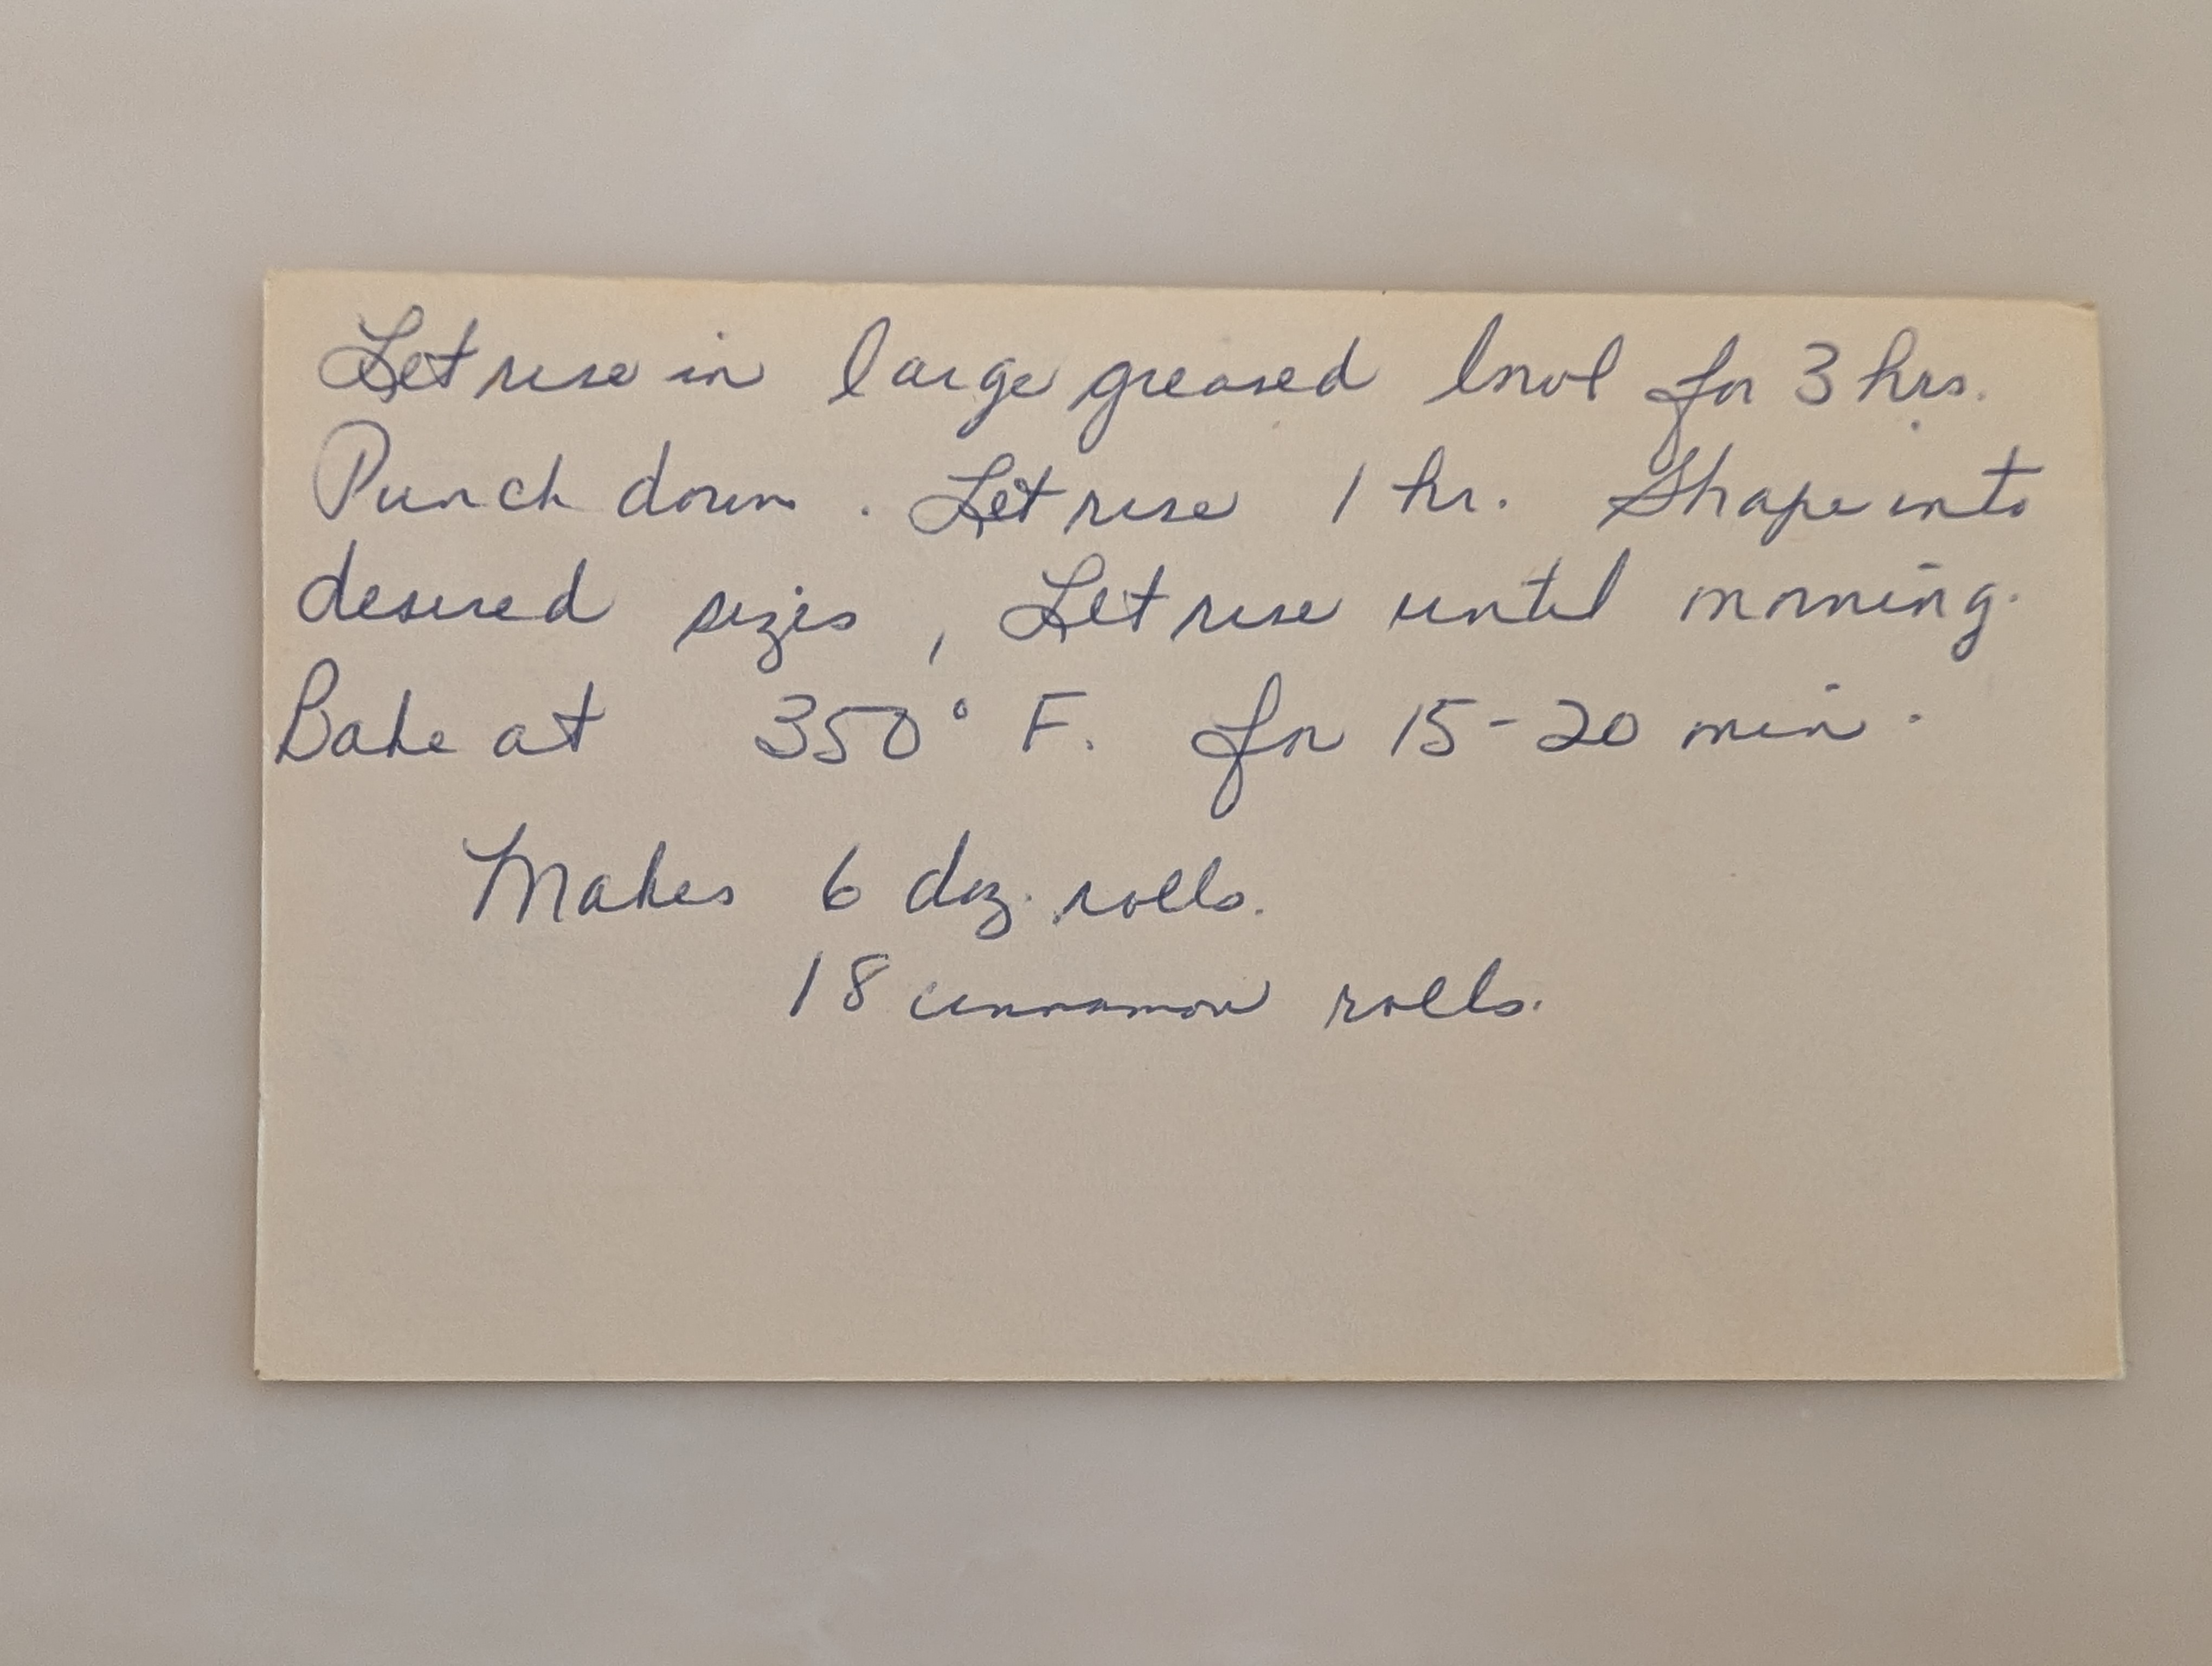 Let rise in large greased bowl for 3 hrs.
Punch down. Let rise 1 hr. Shape into
desired sizes, Let rise until morning.
Bake at 350° F. for 15-20 min.
Makes 6 doz. rolls.
18 cinnamon rolls.